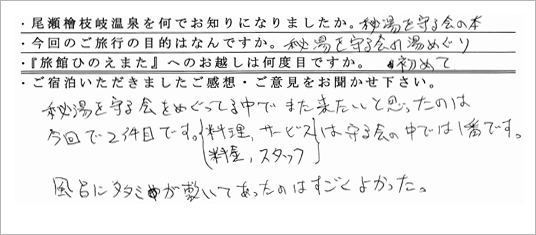 ・尾瀬檜枝岐温泉を何でお知りになりましたか。秘湯を守る会の本
・今回のご旅行の目的はなんですか。秘湯を守る会の湯めぐり
・『旅館ひのえまた』へのお越しは何度目ですか。初めて
・ご宿泊いただきましたご感想・ご意見をお聞かせ下さい。
秘湯を守る会をめぐってる中でまた来たいと思ったのは
今回で2件目です。{料理, サービス
料金, スタッフ}は守る会の中では1番です。
風呂にタタミが敷いてあったのはすごくよかった。